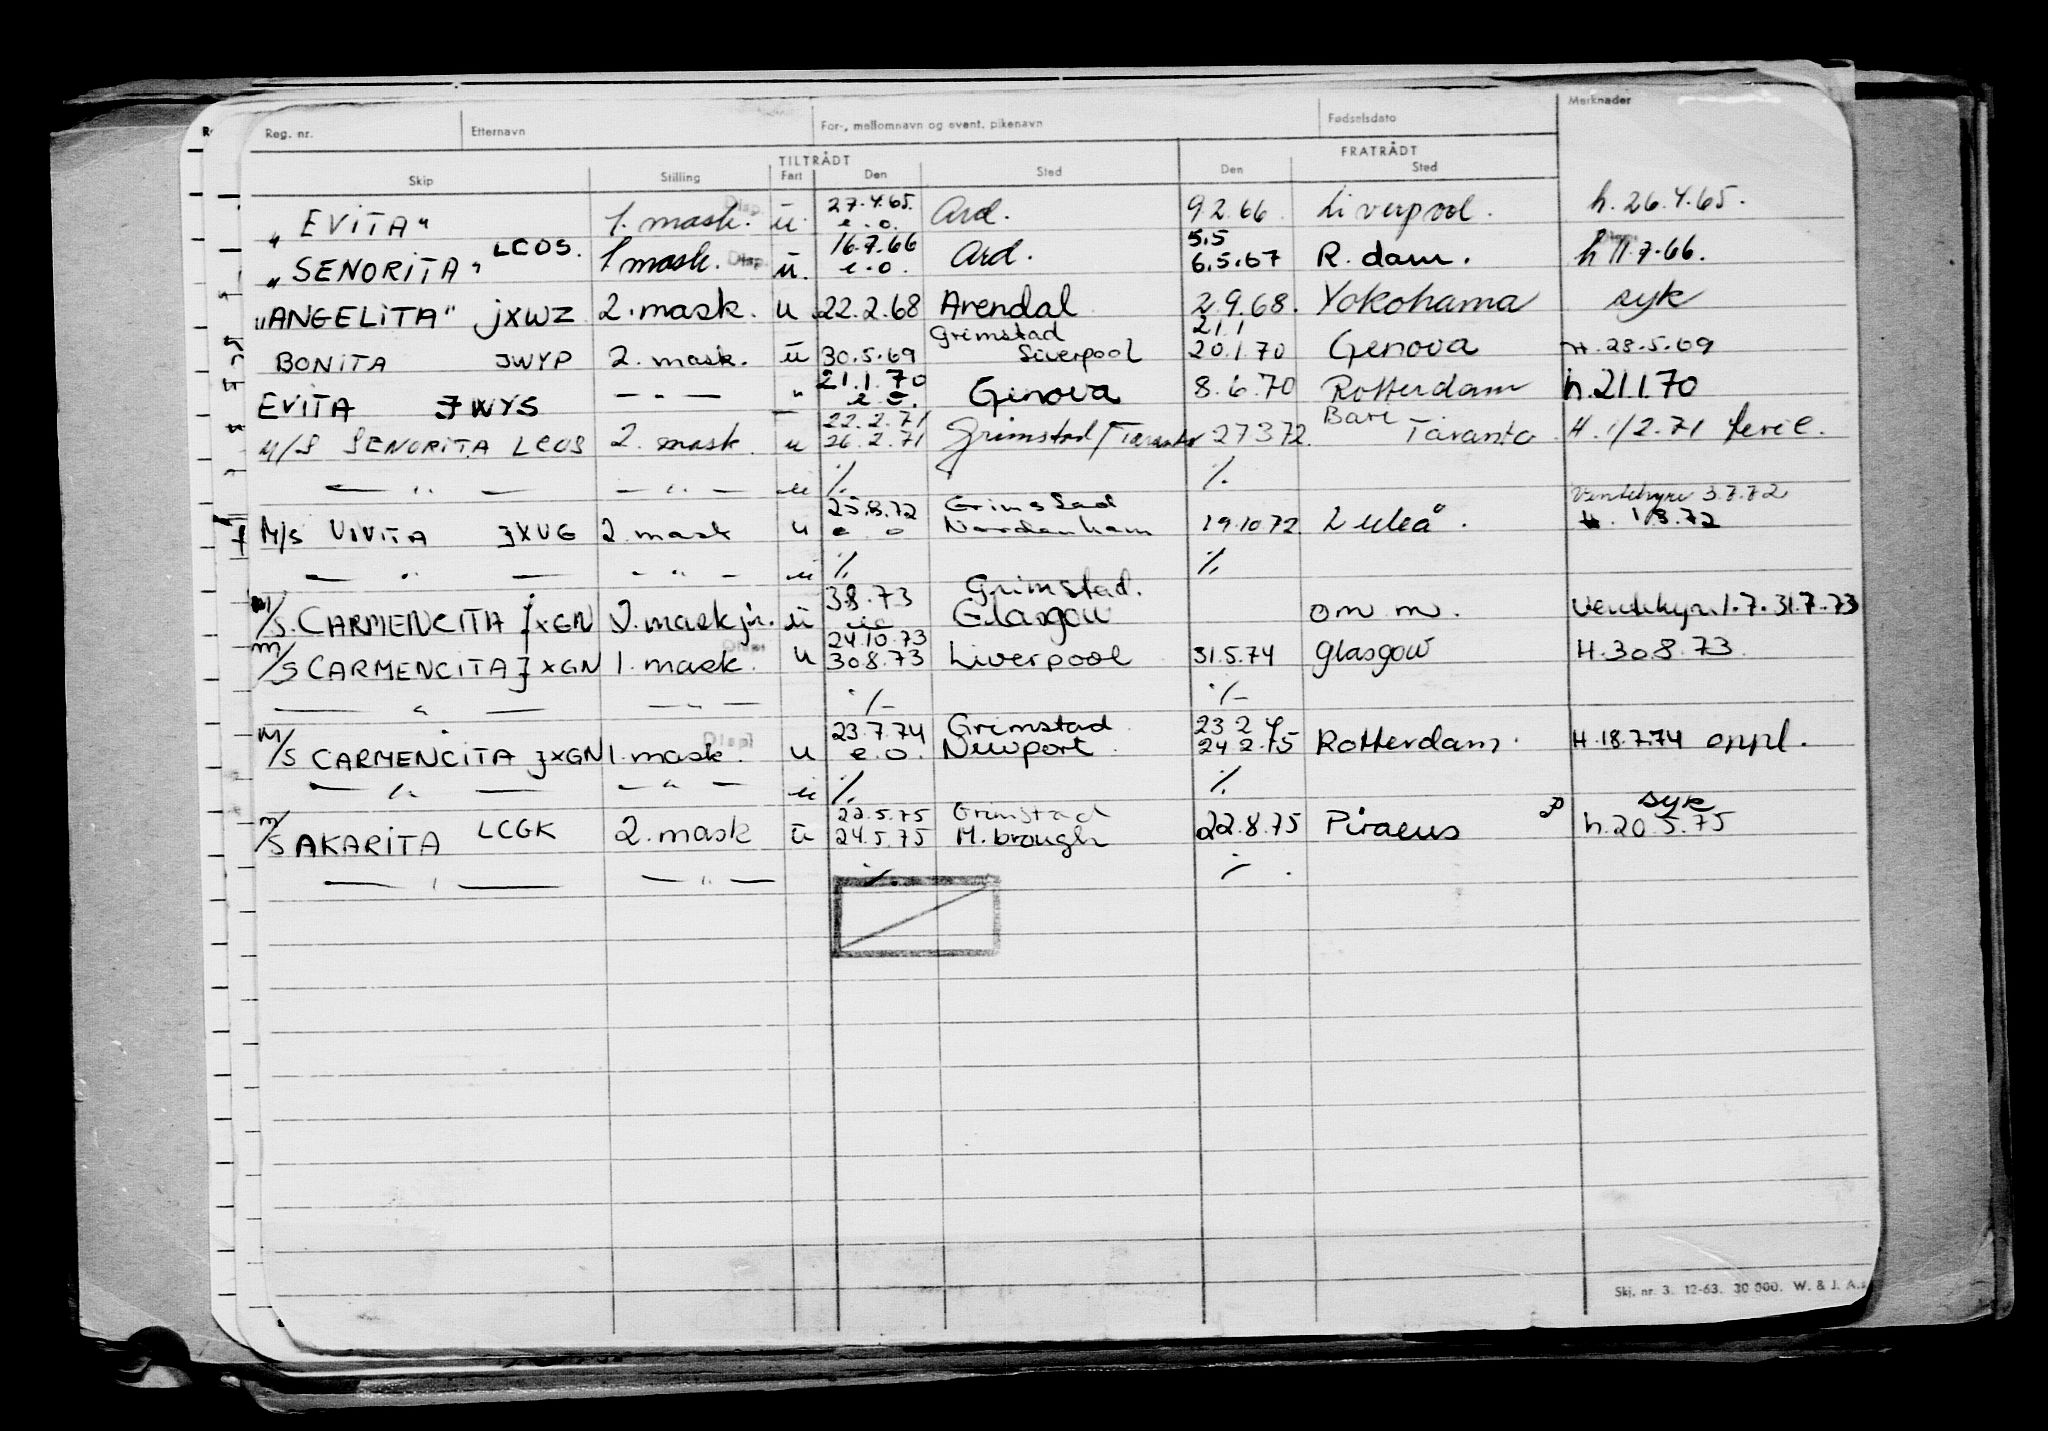 Reg. nr. Etternavn For-, mellomnavn og event. pikenavn Fødselsdato Merknader
TILTRÅDT FRATRÅDT
Skip Stilling Fart Den Sted Den Sted
„EVITA" 1. mask. Disp. ü. 27.4.65. e.o. Ard. 9.2.66. Liverpool. h. 26.4.65.
„SENORITA" LCOS. 1 mask. Disp. ü. 16.7.66 e.o. Ard. 5.5 6.5.67 R.dam. h 11.7.66.
„ANGELITA" JXWZ 2. mask. u 22.2.68 Arendal 2.9.68. Yokohama syk
BONITA JWYP 2. mask. ü 30.5.69 Grimstad Liverpool 21.1 20.1.70 Genova H. 28.5.69
EVITA JWYS — " — " 21.1.70 e.o. Genova 8.6.70 Rotterdam h. 21.1.70
M/S SENORITA LCOS 2. mask u 22.2.71 26.2.71 Grimstad/Taranto 27.3.72. Bari Taranto. H. 1/2.71 ferie.
— " — — " — u ./. ./.
M/S VIVITA JXUG 2. mask u 25.8.72 e o Grimstad Nordenham 19.10.72. Luleå. Ventehyre 3.7.72 H. 1/8.72
— " — — " — u ./. ./.
M/S. CARMENCITA JXGN 2. mask jr. ü 3.8.73 eo Grimstad. Glasgow om m. Ventehyr. 1.7. 31.7.73
M/S CARMENCITA JXGN 1. mask. Disp. u 24.10.73 30.8.73 Liverpool 31.5.74 Glasgow H. 30.8.73.
— " — — " — ./. ./.
M/S CARMENCITA JXGN 1. mask. Disp u 23.7.74 e.o. Grimstad Newport 23 2 24.2.75 Rotterdam. H. 18.7.74 oppl.
— " — — " — u ./. ./.
M/S AKARITA LCGK 2. mask ü 22.5.75 24.5.75 Grimstad M.brough 22.8.75 Piraeus syk h. 20.5.75
— " — — " — ./. ./.
Skj. nr. 3. 12-63. 30 000. W. & J. A.s